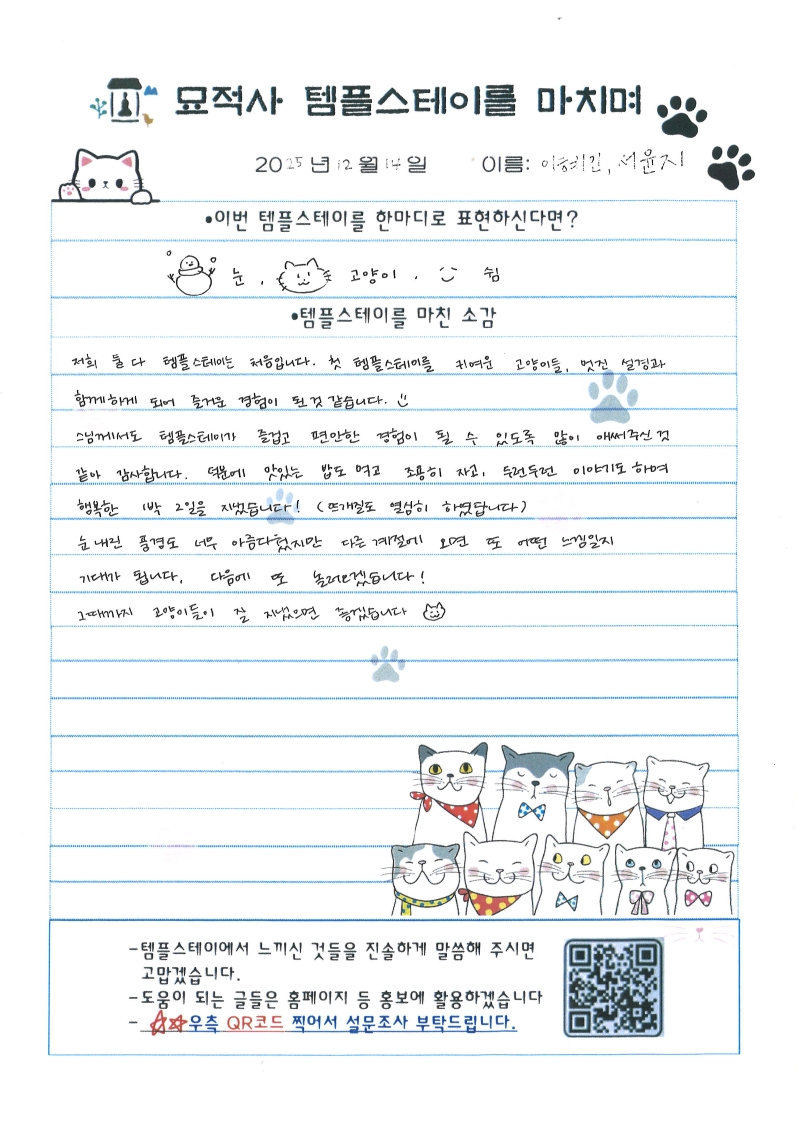 묘적사 템플스테이를 마치며
2025년 12월 14일 이름: 이혜진, 서윤지
•이번 템플스테이를 한마디로 표현하신다면?
눈, 고양이, 쉼
•템플스테이를 마친 소감
저희 둘 다 템플스테이는 처음입니다. 첫 템플스테이를 귀여운 고양이들, 멋진 설경과
함께하게 되어 즐거운 경험이 된 것 같습니다.
스님께서도 템플스테이가 즐겁고 편안한 경험이 될 수 있도록 많이 애써주신 것
같아 감사합니다. 덕분에 맛있는 밥도 먹고 조용히 자고, 두런두런 이야기도 하며
행복한 1박 2일을 지냈습니다! (뜨개질도 열심히 하였답니다)
눈 내린 풍경도 너무 아름다웠지만 다른 계절에 오면 또 어떤 느낌일지
기대가 됩니다. 다음에 또 놀러오겠습니다!
그때까지 고양이들이 잘 지냈으면 좋겠습니다
-템플스테이에서 느끼신 것들을 진솔하게 말씀해 주시면
고맙겠습니다.
-도움이 되는 글들은 홈페이지 등 홍보에 활용하겠습니다
- 우측 QR코드 찍어서 설문조사 부탁드립니다.